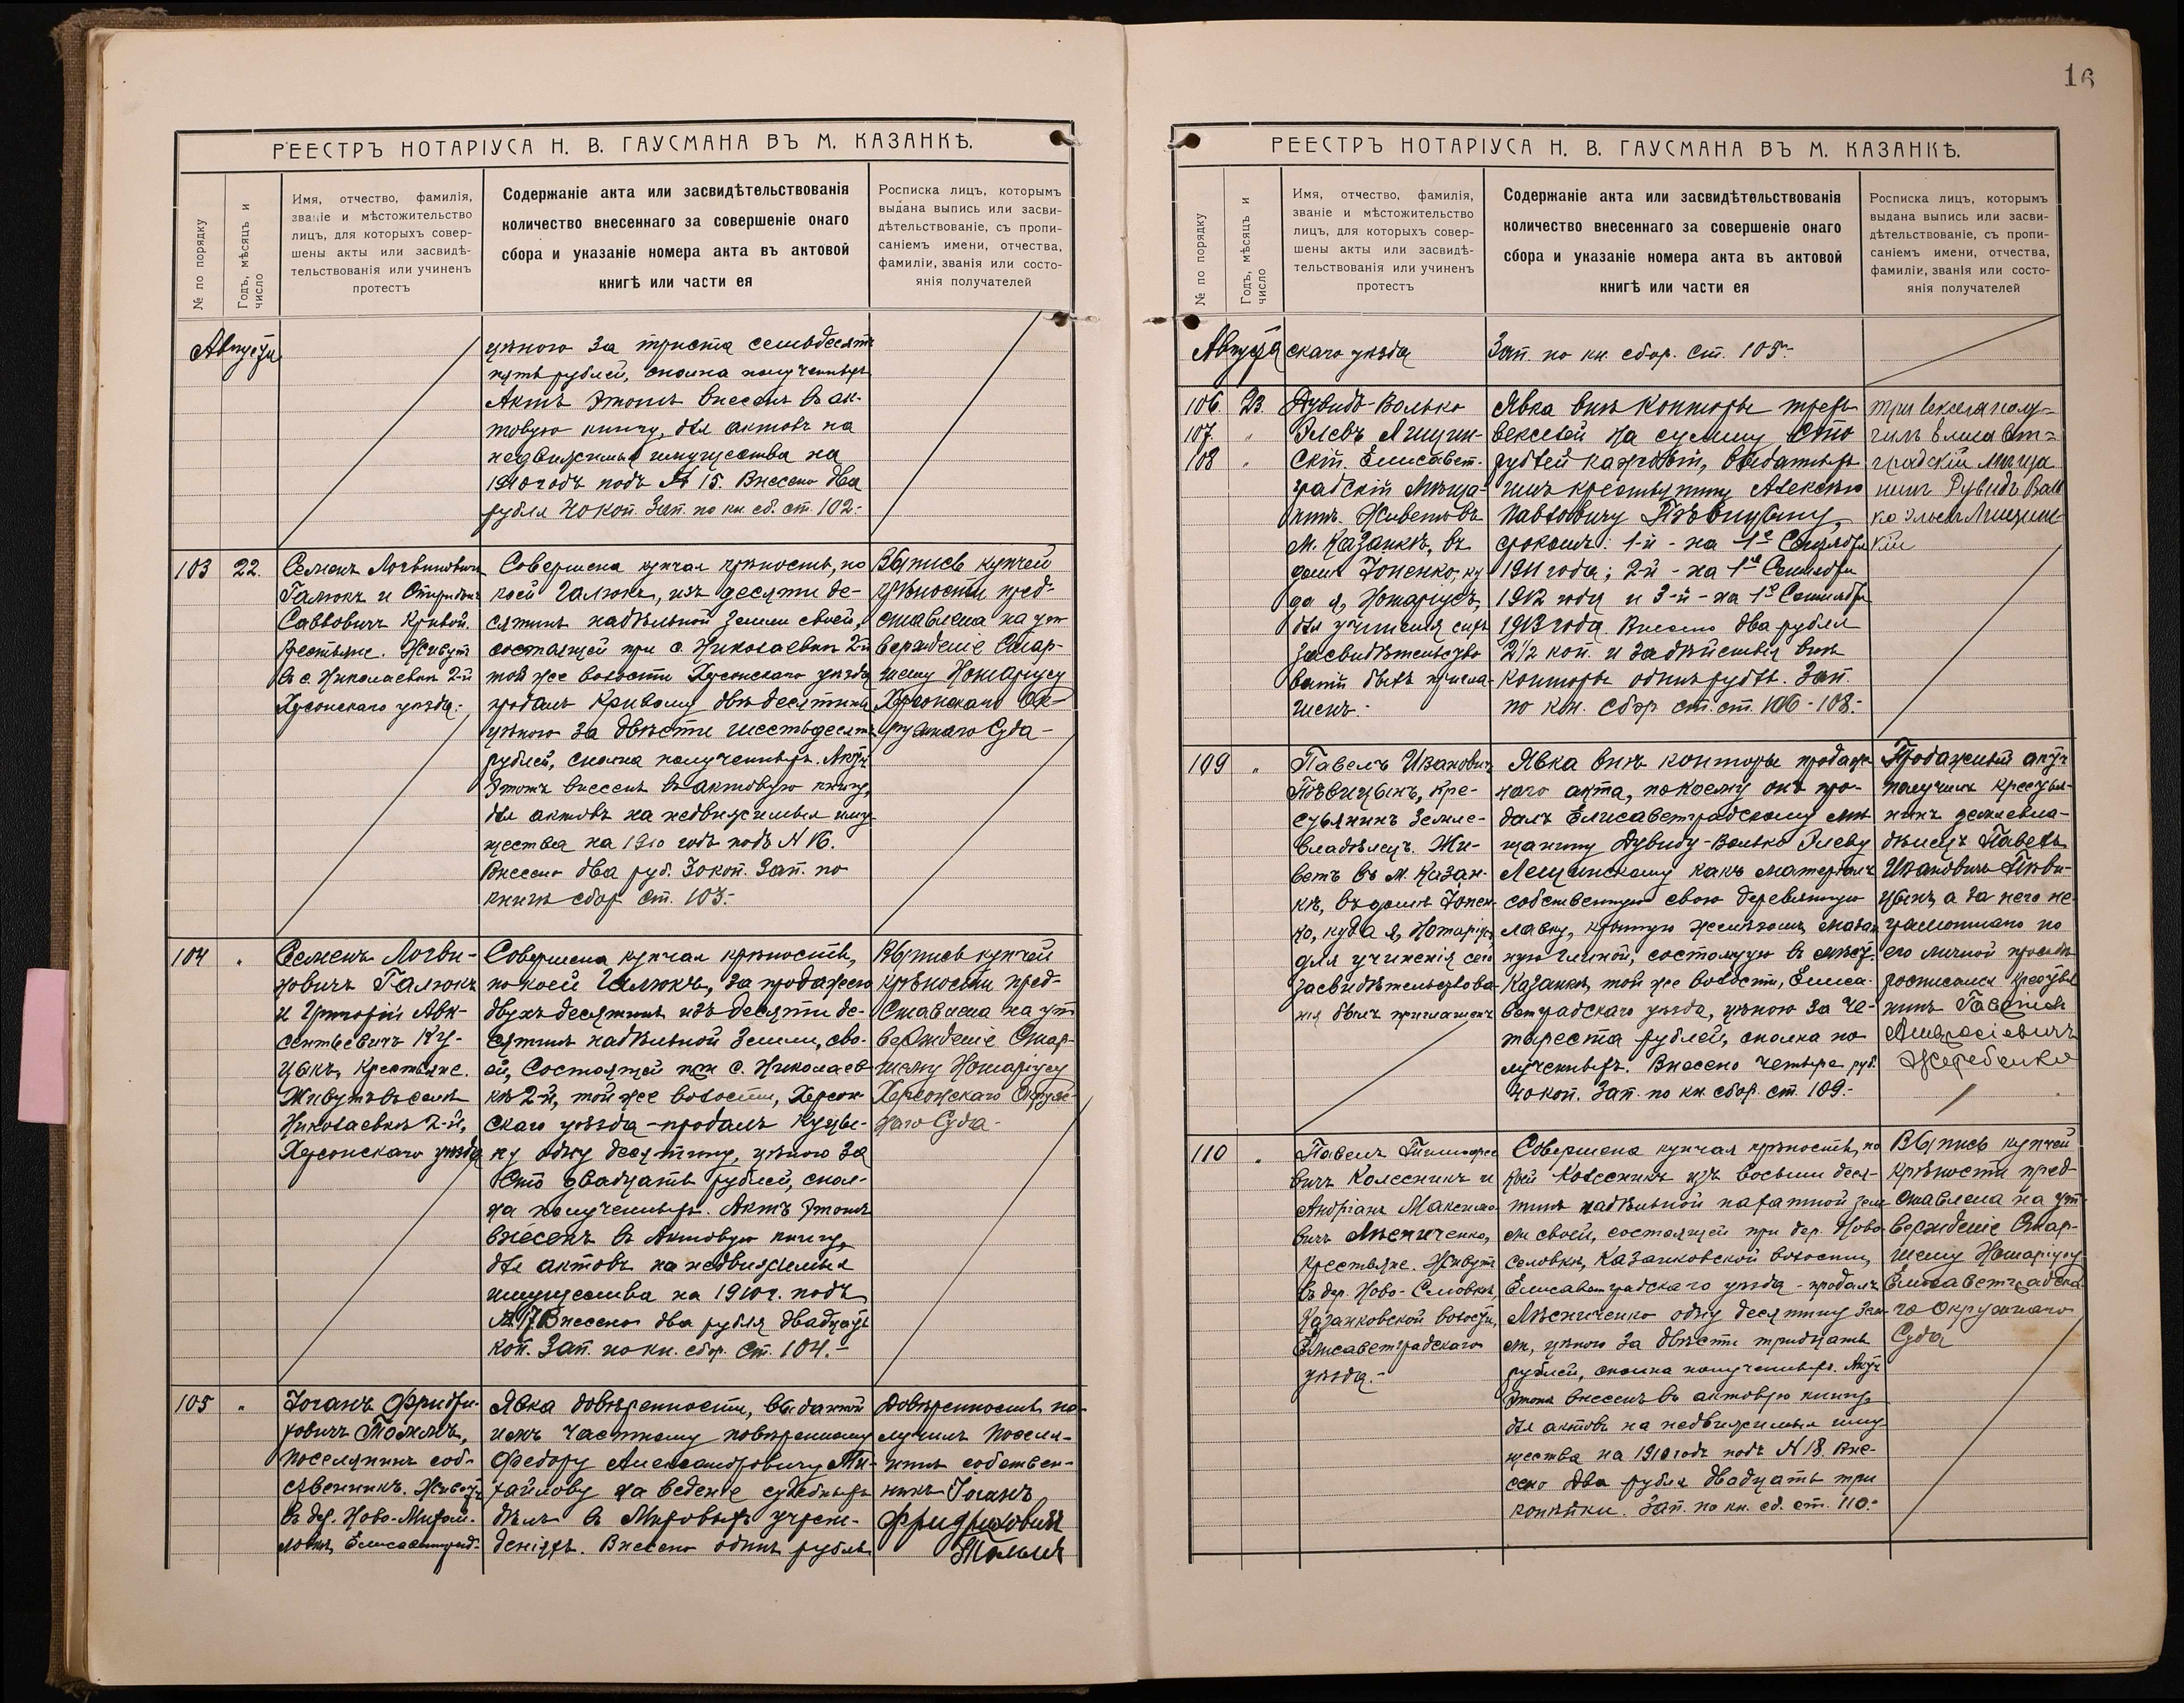 РЕЕСТРЪ НОТАРІУСА Н. В. ГАУСМАНА ВЪ М. КАЗАНКѢ.
№ по порядку
Годъ, мѣсяцъ и
число
Имя, отчество, фамилія,
званіе и мѣстожительство
лицъ, для которыхъ совер-
шены акты или засвидѣ-
тельствованія или учиненъ
протестъ
Содержаніе акта или засвидѣтельствованія
количество внесеннаго за совершеніе онаго
сбора и указаніе номера акта въ актовой
книгѣ или части ея
Росписка лицъ, которымъ
выдана выпись или засви-
дѣтельствованіе, съ пропи-
саніемъ имени, отчества,
фамиліи, званія или состо-
янія получателей
Августа
цѣною за триста семьдесятъ
пять рублей, сполна полученныхъ
Актъ этотъ внесенъ въ ак-
товую книгу, для актовъ на
недвижимыя имущества на
1910 годъ подъ № 15. Внесено два
рубля 40 коп. Зап. по кн. сб. ст. 102.-
103
22.
Семенъ Логвиновичъ
Галюкъ и Спиридонъ
Саввовичъ Кривой.
Крестьяне. Живутъ
въ с. Николаевкѣ 2-й
Херсонскаго уѣзда.-
Совершена купчая крѣпость, по
коей Галюкъ, изъ десяти де-
сятинъ надѣльной земли своей,
состоящей при с. Николаевкѣ 2-й
той же волости Херсонскаго уѣзда
продалъ Кривому двѣ десятины
цѣною за двѣсти шестьдесятъ
рублей, сполна полученныхъ. Актъ
этотъ внесенъ въ актовую книгу,
для актовъ на недвижимыя иму-
щества на 1910 годъ подъ N 16.
Внесено два руб. 30 коп. Зап. по
книгѣ сбор. ст. 103.-
Выпись купчей
крѣпости пред-
ставлена на ут-
вержденіе Стар-
шему Нотаріусу
Херсонскаго Ок-
ружнаго Суда-
104
"
Семенъ Логви-
новичъ Галюкъ
и Григорій Авк-
сентьевичъ Ку-
цыкъ, Крестьяне.
Живутъ въ селѣ
Николаевкѣ 2-й,
Херсонскаго уѣзда
Совершена купчая крѣпость,
по коей Галюкъ, за продажею
двухъ десятинъ изъ десяти де-
сятинъ надѣльной земли, сво-
ей, Состоящей при с. Николаев-
кѣ 2-й, той же волости, Херсон-
скаго уѣзда - продалъ Куцы-
ку одну десятину, цѣною за
Сто двадцать рублей, спол-
на полученныхъ. Актъ этотъ
внесенъ въ Актовую книгу,
для актовъ на недвижимыя
имущества на 1910 г. подъ
№ 17. Внесено два рубля двадцать
коп. Зап. по кн. сбор. Ст. 104.-
Выпись купчей
крѣпости пред-
ставлена на ут-
вержденіе Стар-
шему Нотаріусу
Херсонскаго Окруж-
наго Суда-
105
"
Іоганъ Фридри-
ховичъ
поселянинъ соб-
ственникъ. Живетъ
въ дер. Ново-Михай-
ловкѣ, Елисаветград-
Явка довѣренности, выданной
имъ частному повѣренному
Федору Александровичу Ми-
хайлову на веденіе судебныхъ
дѣлъ въ Мировыхъ учреж-
деніяхъ. Внесено одинъ рубль
Довѣренность по-
лучилъ поселя-
нинъ собствен-
никъ Іоганъ
Фридриховичъ
РЕЕСТРЪ НОТАРІУСА Н. В. ГАУСМАНА ВЪ М. КАЗАНКѢ.
16
№ по порядку
Годъ, мѣсяцъ и
число
Имя, отчество, фамилія,
званіе и мѣстожительство
лицъ, для которыхъ совер-
шены акты или засвидѣ-
тельствованія или учиненъ
протестъ
Содержаніе акта или засвидѣтельствованія
количество внесеннаго за совершеніе онаго
сбора и указаніе номера акта въ актовой
книгѣ или части ея
Росписка лицъ, которымъ
выдана выпись или засви-
дѣтельствованіе, съ пропи-
саніемъ имени, отчества,
фамиліи, званія или состо-
янія получателей
Августа
скаго уѣзда
Зап. по кн. сбор. ст. 105.-
106.
23.
107.
"
108
"
Дувидъ-Волько
Элевъ Лищин-
скій. Елисавет-
градскій Мѣща-
нинъ. Живетъ въ
М. Казанкѣ, въ
домѣ Іоненко, ку-
да я, Нотаріусъ,
для учиненія сихъ
засвидѣтельство
ваній былъ пригла-
шенъ.-
Явка внѣ конторы трехъ
векселей на сумму Сто
рублей каждый, выданныхъ
имъ крестьянину Алексѣю
Павловичу Пѣвицыну,
сроками: 1-й - на 1е Сентября
1911 года; 2-й - на 1е Сентября
1912 года и 3-й - на 1е Сентября
1913 года. Внесено два рубля
2 1/2 коп. и за дѣйствія внѣ
конторы одинъ рубль. Зап.
по кн. сбор. ст. ст. 106 - 108.-
три векселя полу-
чилъ Елисавет-
градскій мѣща
нинъ Дувидъ Воль
ко Элевъ Лищинс
кій
109
"
Павелъ Ивановичъ
Пѣвицынъ, кре-
стьянинъ земле-
владѣлецъ. Жи-
ветъ въ м. Казан-
кѣ, въ домѣ Іонен-
ко, куда я, Нотаріусъ
для учиненія сего
засвидѣтельствова-
нія былъ приглашенъ
Явка внѣ конторы продаж-
наго акта, по коему онъ про-
далъ Елисаветградскому мѣ-
щанину Дувиду-Волько Элеву
Лещинскому какъ матеріалъ
собственную свою деревянную
лавку, крытую желѣзомъ, мазан-
ную глиной, состоящую въ мѣст.
Казанкѣ, той же волости, Елиса-
ветградскаго уѣзда, цѣною за Че-
тыреста рублей, сполна по-
лученныхъ. Внесено четыре руб.
40 коп. Зап. по кн. сбор. ст. 109.-
Продажный актъ
получилъ крестья-
нинъ землевла-
дѣлецъ Павелъ
Ивановичъ Пѣви-
цынъ, а за него не-
грамотнаго по
его личной просьбѣ
росписался крестья
нинъ
Амвросіевичъ
110
"
Павелъ Тимофѣе-
вичъ Колесникъ и
Андріанъ Максимо-
вичъ Мѣсниченко,
Крестьяне. Живутъ
въ дер. Ново-Селовкѣ,
Казанковской волости,
Елисаветградскаго
уѣзда.-
Совершена купчая крѣпость, по
коей Колесникъ изъ восьми деся-
тинъ надѣльной пахатной зем-
ли своей, состоящей при дер. Ново-
селовкѣ, Казанковской волости,
Елисаветградскаго уѣзда - продалъ
Мѣсниченко одну десятину зем-
ли, цѣною за двѣсти тридцать
рублей, сполна полученныхъ. Актъ
этотъ внесенъ въ актовую книгу,
для актовъ на недвижимыя иму-
щества на 1910 годъ подъ N 18. Вне-
сено два рубля двадцать три
копѣйки. Зап. по кн. сб. ст. 110.-
Выпись купчей
крѣпости пред-
ставлена на ут-
вержденіе Стар-
шему Нотаріусу
Елисаветградска-
го Окружнаго
Суда